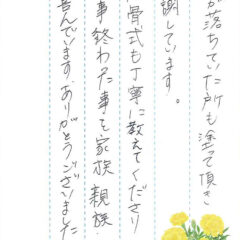 が落ちていた所も塗って頂き
謝しています。
骨式も丁寧に教えてくださり
事終わった事を家族親族
喜んでいます。ありがとうございました